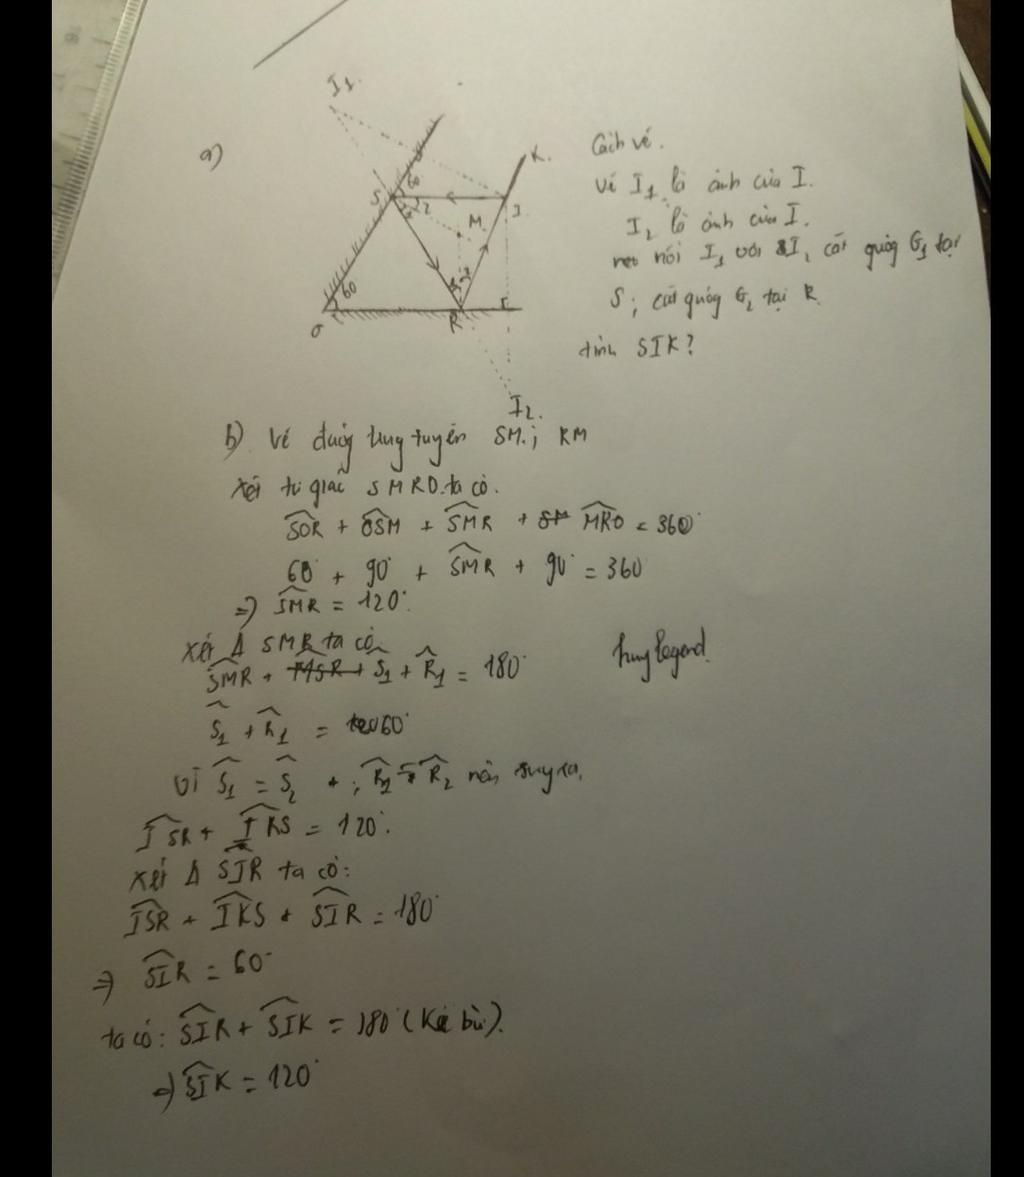 a)
I1.
K.
S
60
2
M
I
60
O
R
I2.
Cách vẽ.
vẽ I1 là ảnh của I.
I2 là ảnh của I.
nối I1 với I2 cắt gương G1 tại
S; cắt gương G2 tại R.
tính SIK?
b) Vẽ đường trung tuyến SM; RM
Xét tứ giác SMRO ta có.
SOR + OSM + SMR + MRO = 360°
60° + 90° + SMR + 90° = 360
=) SMR = 120°.
Xét Δ SMR ta có
SMR + S1 + R1 = 180°
hung legend.
S1 + R1 = 60°
Vì S1 = S2 ; R1 = R2 nên suy ra.
ISR + IRS = 120°.
Xét Δ SIR ta có:
ISR + IKS + SIR = 180°
=) SIR = 60°
ta có: SIR + SIK = 180° (Kề bù).
=) SIK = 120°